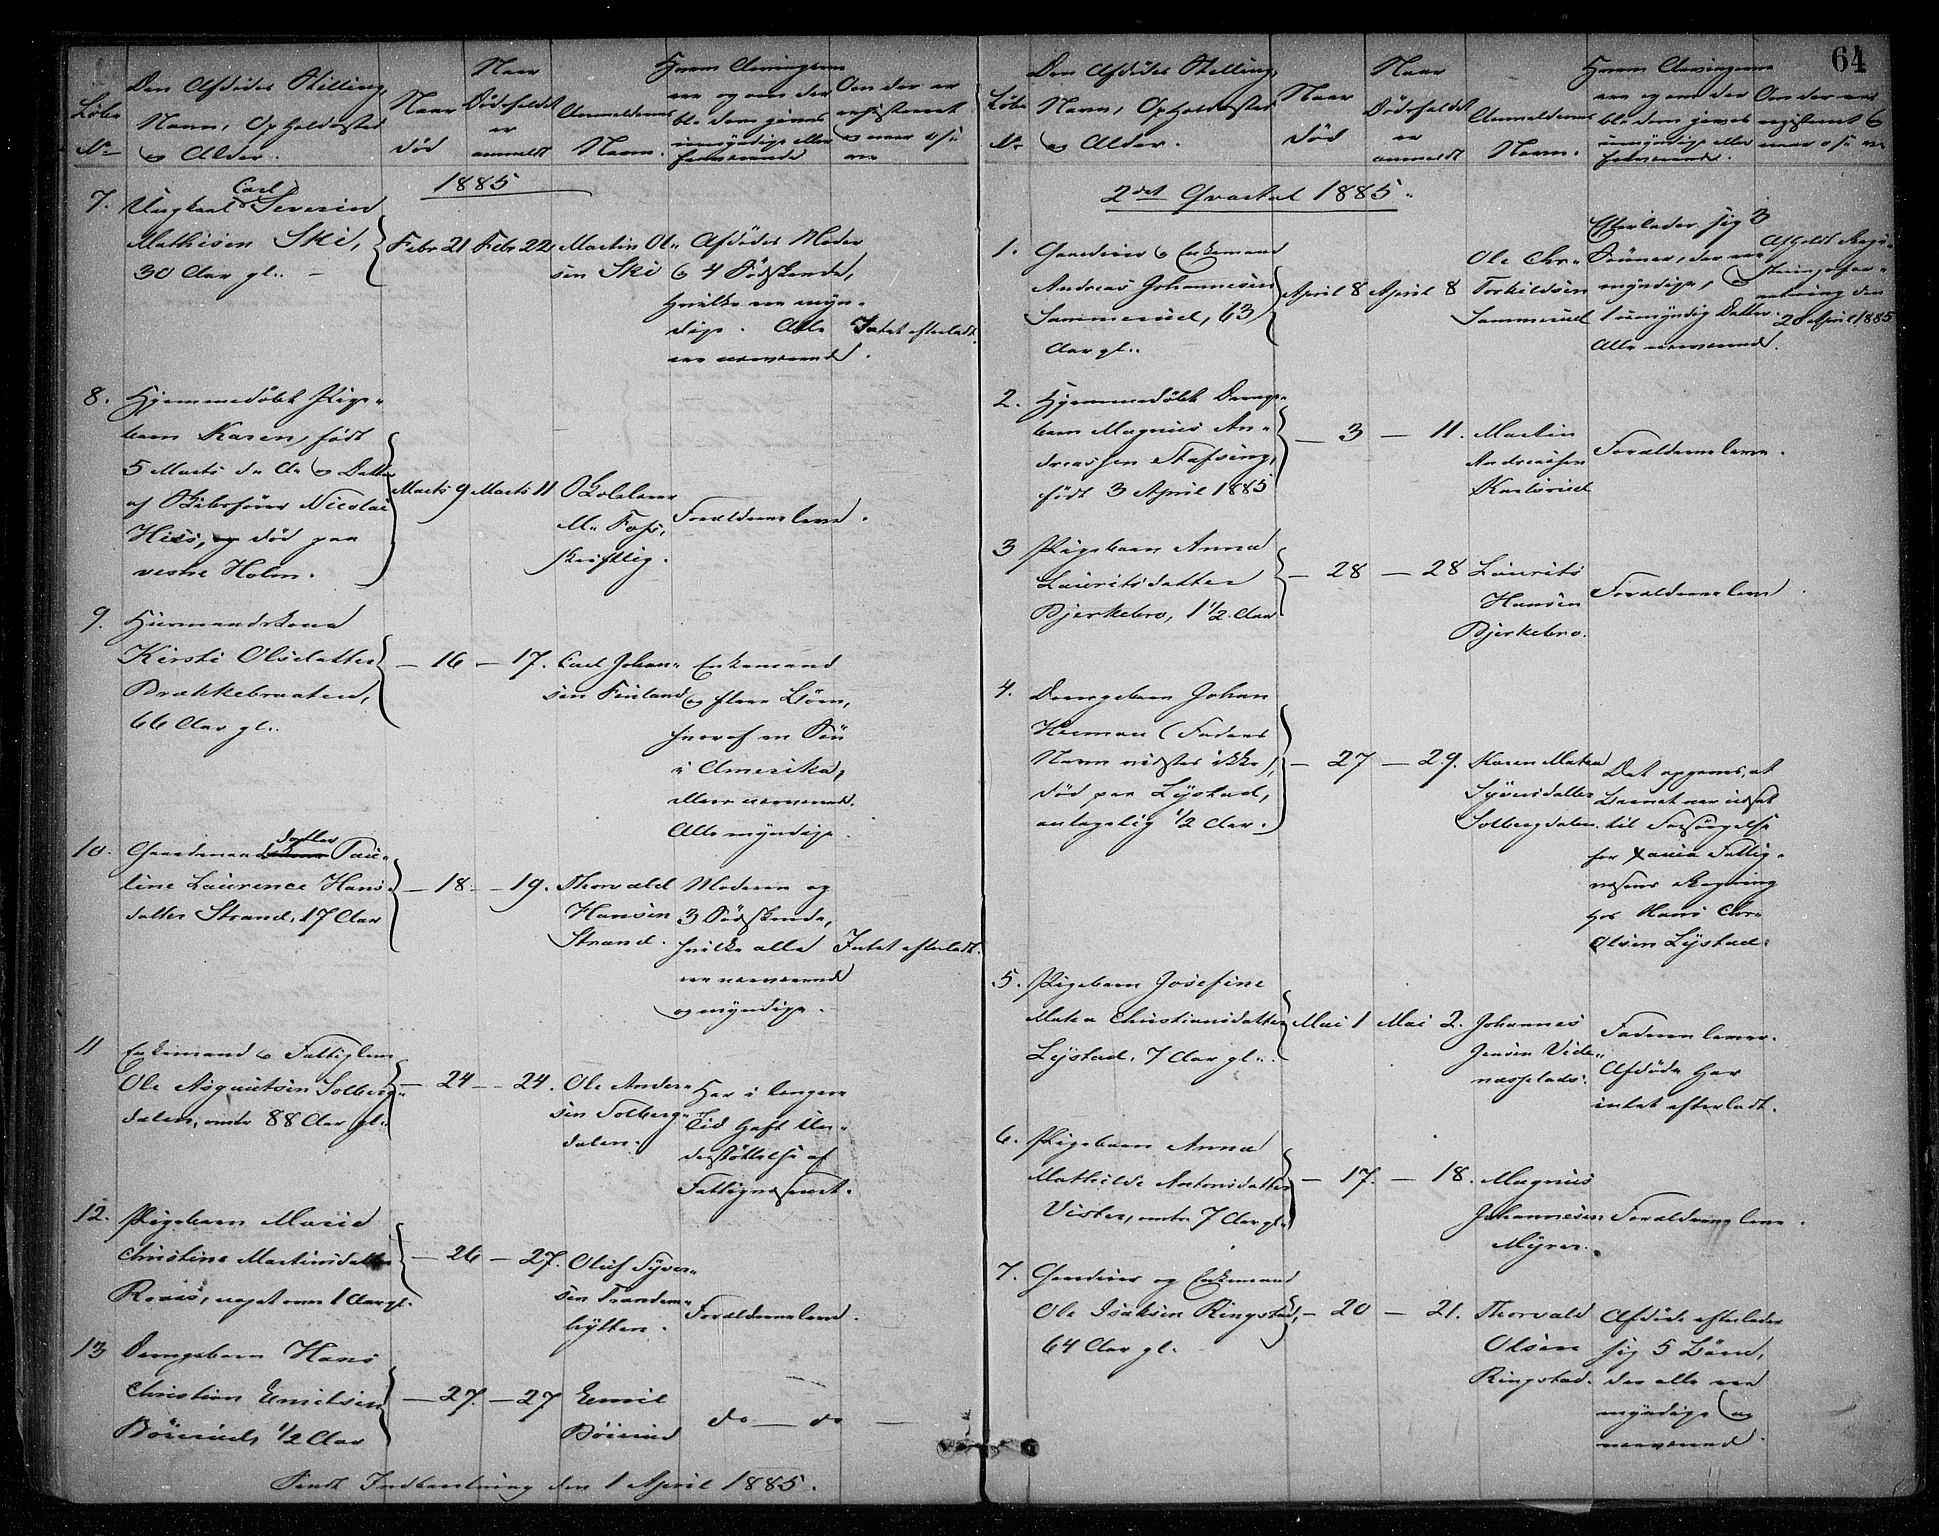 64
Løbe
No
Den Afdødes Stilling
Navn, Opholdssted
& Alder.
Naar
død
Naar
Dødsfaldet
er
anmeldt
Anmelderens
Navn.
Hvem Arvingerne
ere og om der
bl. dem gives
umyndige eller
fraværende
Om der er
registeret
& naar o.s.v.
1885
7. Ungkarl Carl Severin
Mathisen Ski,
30 Aar gl.. –
Febr 21 Febr 22
Martin Ol-
sen Ski
Afdødes Moder
& 4 Sødskende,
hvilke ere myn-
dige. Alle
ere nærværende.
Intet efterladt.
8. Hjemmedøbt Pige-
barn Karen, født
5 Marts d. A. & Datter
af
Nicolai
død paa
vestre Holm.
Marts 9 Marts 11
M. Foss,
skriftlig.
Forældrene leve.
9. Huusmandskone
Kirsti Olsdatter
Brækkebraaten,
66 Aar gl..
— 16 — 17.
Carl Johan-
sen Finland
Enkemand
& flere Børn,
hvoraf en Søn
i Amerika,
ellers nærværende.
Alle myndige.
10. Gaardmand datter Pau-
line Laurence Hans-
datter Strand, 17 Aar
— 18 — 19.
Thorvald
Hansen
Strand.
Moderen og
3 Sødskende,
hvilke alle
ere nærværende
og myndige.
Intet efterladt.
11 Enkemand & Fattiglem
Ole Asgautsen Solberg-
dalen, omtr 88 Aar gl..
— 24 — 24.
Ole Ander-
sen Solberg-
dalen.
Har i længere
Tid haft Un-
derstøttelse af
Fattigvæsenet.
12. Pigebarn Marie
Christine Martinsdatter
noget over 1 Aar gl.
— 26 — 27.
Oluf Syver-
sen
hytten.
Forældrene leve.
13 Drengebarn Hans
Christian Emilsen
Böierud, 1/2 Aar
— 27. — 27
Emil
Böierud
do — do —
Sendt Indberetning den 1 April 1885.
Løbe
No
Den Afdødes Stilling,
Navn, Opholdssted
& Alder.
Naar
død
Naar
Dødsfaldet
er
anmeldt
Anmelderens
Navn.
Hvem Arvingerne
ere og om der
bl. dem gives
umyndige eller
fraværende.
Om der er
registeret &
naar o.s.v.
2det Qvartal 1885.
1. Gaardbruger & Enkemand
Andreas Johannesen
Sammerud, 63
Aar gl..
April 8 April 8
Ole Chr.
Torkildsen
Sammerud
Efterlader sig 3
Sønner, der ere
myndige, &
1 umyndig Datter.
Alle nærværende.
Afholdt Regi-
steringsfor-
retning den
20 April 1885
2. Hjemmedøbt Drenge-
barn Magnus An-
dreassen Stafsing,
født 3 April 1885
— 3 — 11.
Martin
Andreassen
Karlsrud
Forældrene leve.
3 Pigebarn Anna
Lauritsdatter
Bjerkebro, 1 1/2 Aar
— 28 — 28
Laurits
Hansen
Bjerkebro.
Forældrene leve.
4. Drengebarn Johan
Herman (Faderens
Navn vidstes ikke),
død paa Lystad,
antagelig 1/2 Aar.
— 27 — 29.
Karen Matea
Syversdatter
Solbergdalen.
Det opgives, at
Barnet var udsat
til Forsørgelse
for Fattig-
væsens Regning
hos Hans Chr.
Olsen Lystad.
5. Pigebarn Josefine
Matea Christiansdatter
Lystad, 7 Aar gl..
Mai 1 Mai 2.
Johannes
Jensen Vide-
næsplads.
Faderen lever.
Afdøde har
intet efterladt.
6. Pigebarn Anna
Mathilde Antonsdatter
Vister, omtr 7 Aar gl.
— 17. — 18.
Magnus
Johannesen
Myrer.
Forældrene leve.
7. Gaardbruger og Enkemand
Ole Isaksen Ringstad,
64 Aar gl.
— 20 — 21.
Thorvald
Olsen
Ringstad.
Afdøde efterlader
sig 5 Børn,
der alle ere
myndige & og
nærværende.